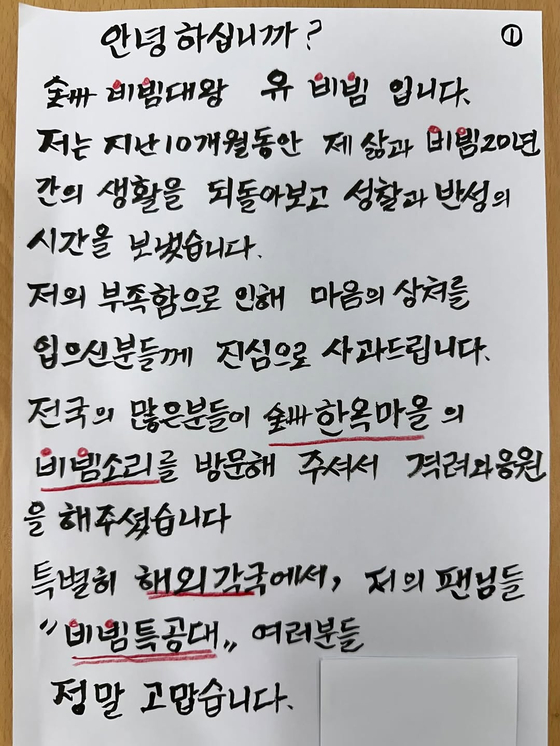 안녕하십니까? ①
全州 비빔대왕 유 비빔 입니다.
저는 지난10개월동안 제 삶과 비빔20년
간의 생활을 되돌아보고 성찰과 반성의
시간을 보냈습니다.
저의 부족함으로 인해 마음의 상처를
입으신분들께 진심으로 사과드립니다.
전국의 많은분들이 全州한옥마을의
비빔소리를 방문해 주셔서 격려와응원
을 해주셨습니다
특별히 해외각국에서, 저의 팬님들
“비빔특공대„ 여러분들
정말 고맙습니다.